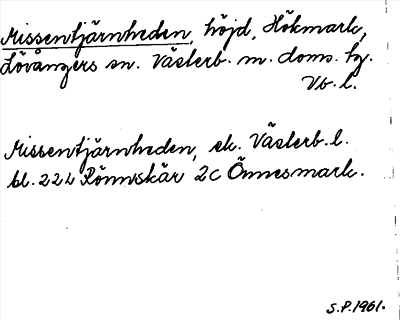 Missentjärnheden, höjd, Hökmark,
Lövångers sn. Västerb. m. doms. tg.
Vb. l.
Missentjärnheden, ek. Västerb. l.
bl. 224 Rönnskär 2c Önnesmark.
S.P. 1961.